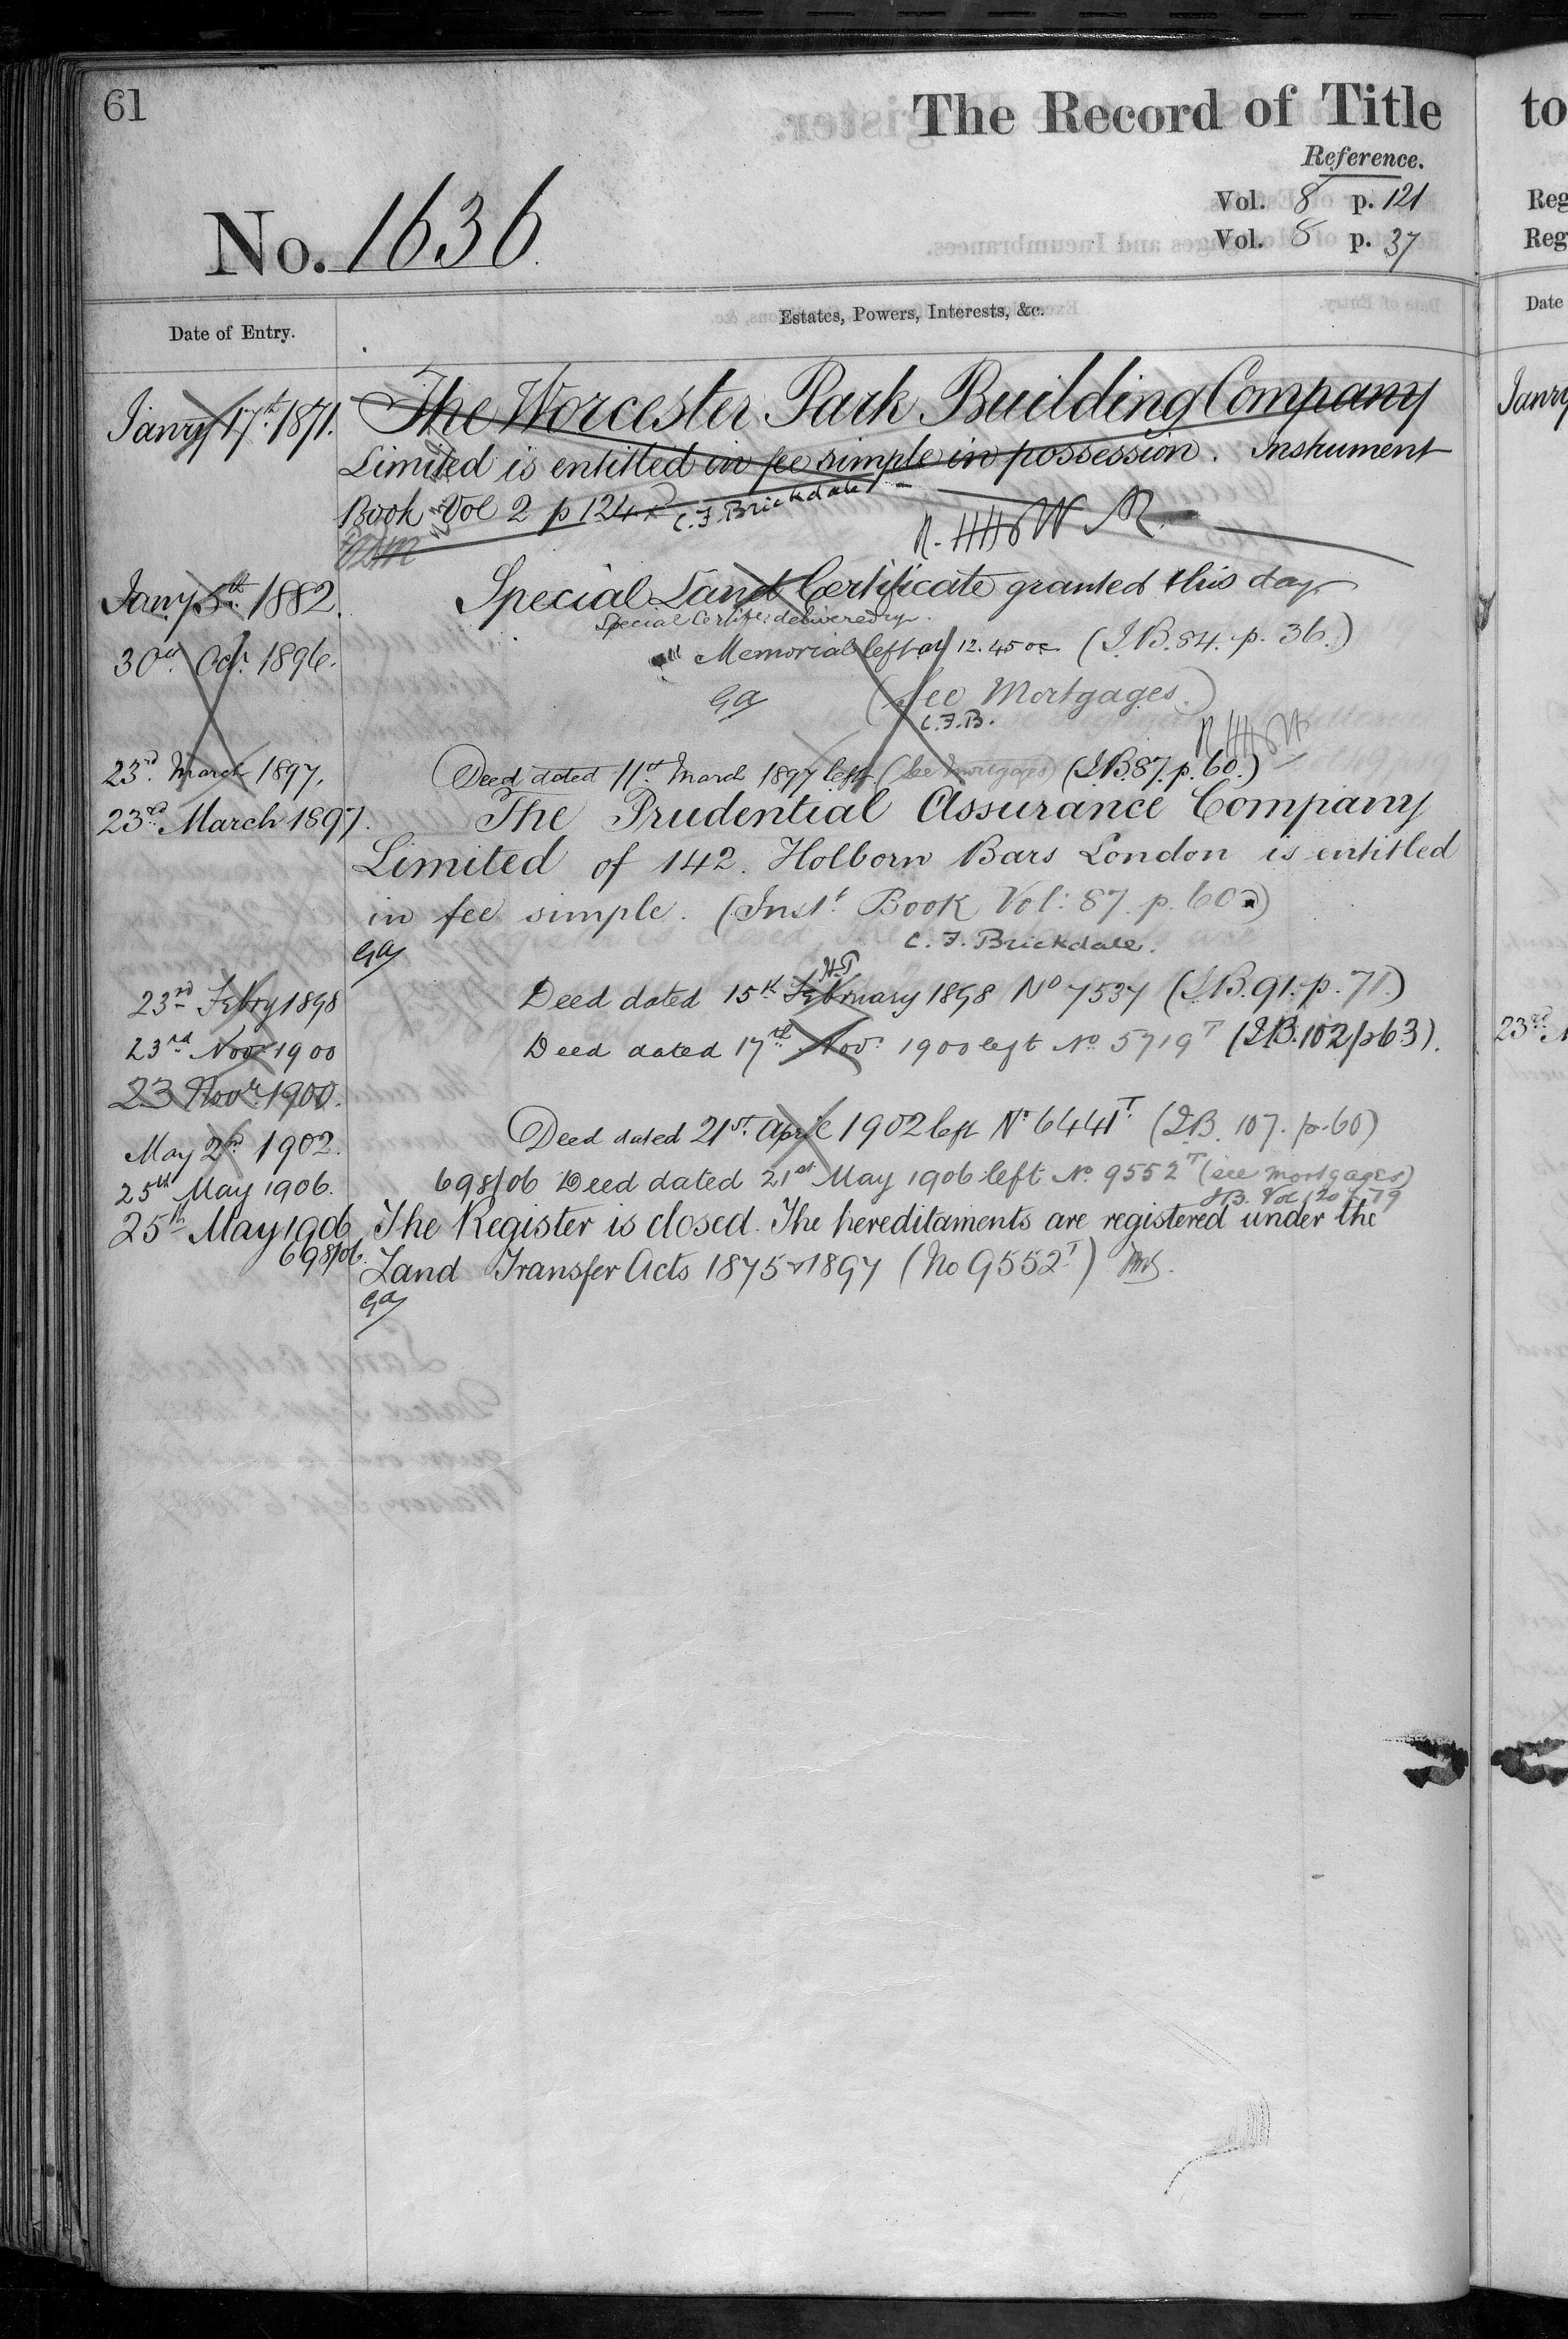 61
The Record of Title
to
Reference.
Vol. 8 p. 121
Reg
No. 1636
Vol. 8 p. 37
Reg
Date of Entry.
Estates, Powers, Interests, &c.
Date
Janry 17th 1871.
The Worcester Park Building Company
Janry
Limited is entitled in fee simple in possession. Instrument
Book Vol 2 p 124
C. F. Brickdale
Jany 5th 1882.
Special Land Certificate granted this day
Special Certif: delivered
30th Octr. 1896.
Memorial left at 12.45 oc (I.B. 84. p. 36.)
GA
(See Mortgages.)
C.F.B.
23rd. March 1897.
Deed dated 11th March 1897 left (See Mortgages) (I.B. 87. p. 60.)
23rd March 1897.
The Prudential Assurance Company
Limited of 142. Holborn Bars London is entitled
in fee simple. (Inst.t Book Vol: 87. p. 60)
GA
C. F. Brickdale.
23rd Febry 1898
Deed dated 15th February 1898 No 7537 (I.B. 91. p. 71.)
23rd Novr 1900
Deed dated 17th Novr 1900 left No. 5719T (I.B. 102/p 63).
23rd
23 Novr. 1900.
May 2nd 1902.
Deed dated 21st. April 1902 left No. 6441T. (I.B. 107. p. 60)
25th May 1906.
698/06 Deed dated 21st May 1906 left No. 9552T (see mortgages)
I.B. Vol 120 p 79
25th May 1906
The Register is closed. The hereditaments are registered under the
698/06.
Land Transfer Acts 1875 & 1897 (No 9552T)
GA